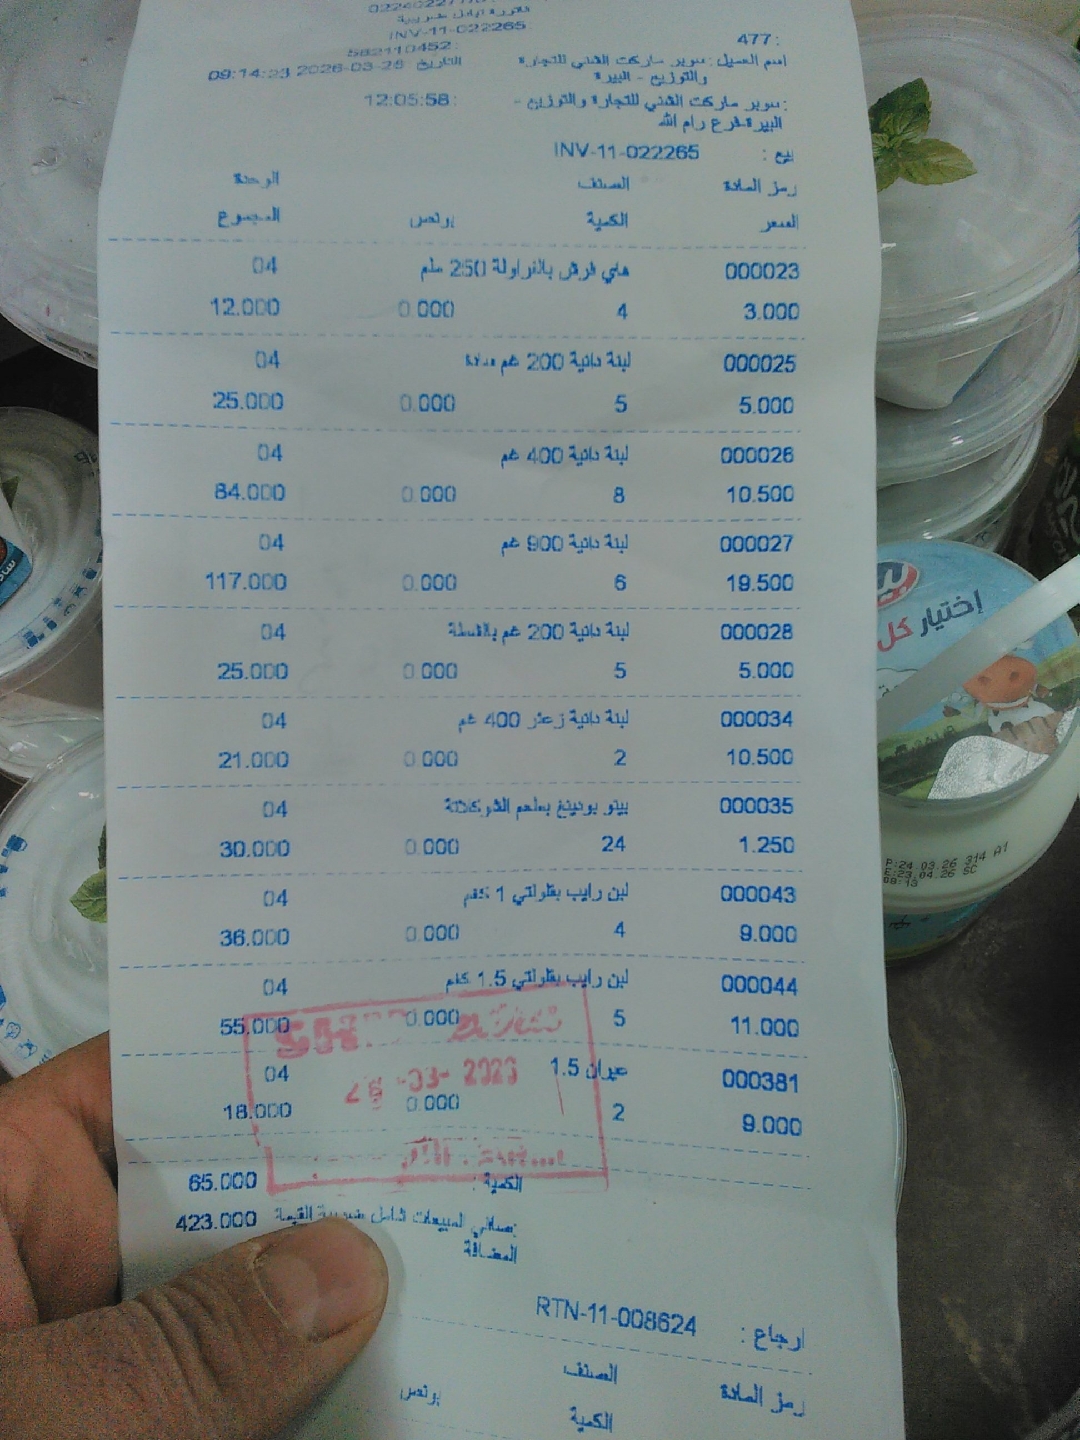 فاتورة
INV-11-022265
562110452:
477:
اسم العميل: سوبر ماركت الشني للتجارة والتوزيع - البيرة
التاريخ 2026-03-26 09:14:23
:سوبر ماركت الشني للتجارة والتوزيع - البيرة-فرع رام الله
12:05:58:
بيع : INV-11-022265
رمز المادة الصنف الوحدة
السعر الكمية بونص المجموع
000023 هاي فرش بالفراولة 250 ملم 04
3.000 4 0.000 12.000
000025 لبنة دانية 200 غم سادة 04
5.000 5 0.000 25.000
000026 لبنة دانية 400 غم 04
10.500 8 0.000 84.000
000027 لبنة دانية 900 غم 04
19.500 6 0.000 117.000
000028 لبنة دانية 200 غم بالفلفلة 04
5.000 5 0.000 25.000
000034 لبنة دانية زعتر 400 غم 04
10.500 2 0.000 21.000
000035 بينو بودينغ بطعم الشوكلاتة 04
1.250 24 0.000 30.000
000043 لبن رايب بقلولتي 1 كغم 04
9.000 4 0.000 36.000
000044 لبن رايب بقلولتي 1.5 كغم 04
11.000 5 0.000 55.000
000381 عيران 1.5 04
9.000 2 0.000 18.000
الكمية : 65.000
صافي المبيعات شامل ضريبة القيمة المضافة 423.000
ارجاع : RTN-11-008624
رمز المادة الصنف
الكمية بونص
-03- 2026
إختيار كل
P:24 03 26 314 A1
E:23 04 26 SC